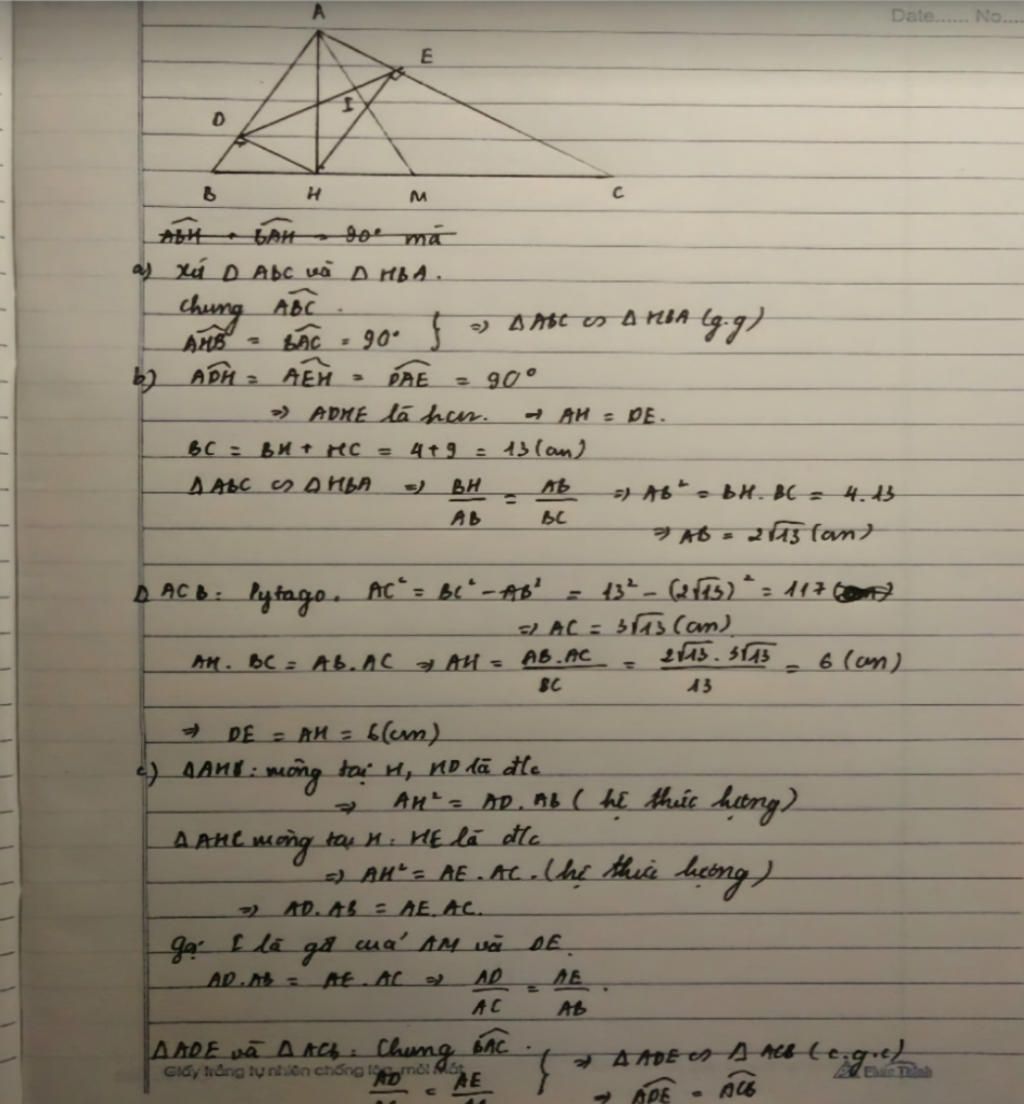 Date...... No....
A
E
I
D
B H M C
ABH + BAH = 90° mà
a) Xét Δ ABC và Δ HBA.
Chung ABC.
AHB = BAC = 90° } => Δ ABC ∽ Δ HBA (g.g)
b) ADH = AEH = DAE = 90°
=> ADHE là hcn. → AH = DE.
BC = BH + HC = 4+9 = 13 (cm)
Δ ABC ∽ Δ HBA => BH/AB = AB/BC => AB² = BH. BC = 4.13
=> AB = 2√13 (cm)
Δ ACB: Pytago. AC² = BC² - AB² = 13² - (2√13)² = 117
=> AC = 3√13 (cm)
AH. BC = AB. AC => AH = AB.AC/BC = 2√13 . 3√13/13 = 6 (cm)
=> DE = AH = 6(cm)
c) ΔAHB: vuông tại H, HD là đ/c
=> AH² = AD. AB ( hệ thức lượng)
Δ AHC vuông tại H: HE là đ/c
=> AH² = AE. AC. (hệ thức lượng)
=> AD. AB = AE. AC.
Gọi I là gđ của AM và DE.
AD.AB = AE. AC => AD/AC = AE/AB.
Δ ADE và Δ ACB: Chung BAC.
AD = AE } => Δ ADE ∽ Δ ACB (c.g.c)
=> ADE = ACB
Giấy trắng tự nhiên chống lóa, mỏi mắt Phúc Thịnh